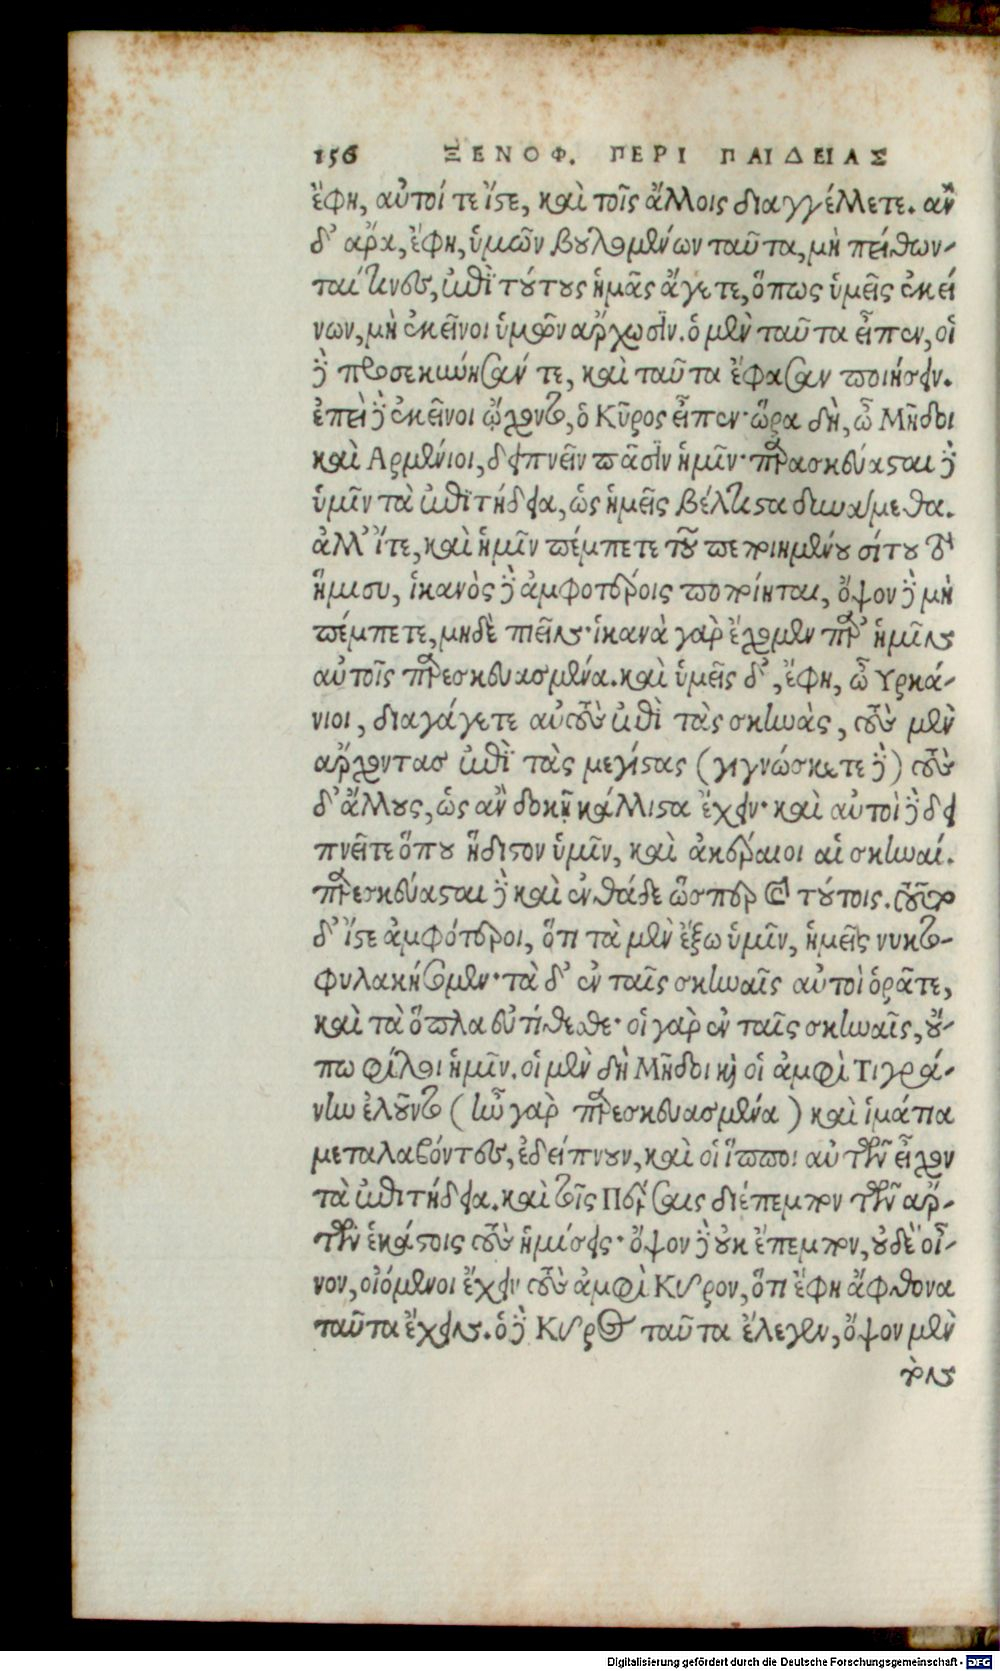 156 ΞΕΝΟΦ. ΠΕΡΙ ΠΑΙΔΕΙΑΣ
ἔφη, αὐτοί τε ἴστε, καὶ τοῖς ἄλλοις διαγγέλλετε. ἂν
δ' ἄρα, ἔφη, ὑμῶν βουλομένων ταῦτα, μὴ πείθων-
ταί τινες, ἐπὶ τούτους ἡμᾶς ἄγετε, ὅπως ὑμεῖς ἐκεί
νων, μὴ ἐκεῖνοι ὑμῶν ἄρχωσιν. ὁ μὲν ταῦτα εἶπεν, οἱ
δὲ προσεκύνησάν τε, καὶ ταῦτα ἔφασαν ποιήσειν.
ἐπεὶ δὲ ἐκεῖνοι ᾤχοντο, ὁ Κῦρος εἶπεν· ὥρα δὴ, ὦ Μῆδοι
καὶ Αρμένιοι, δειπνεῖν πᾶσιν ἡμῖν· παρασκεύασται δὲ
ὑμῖν τὰ ἐπιτήδεια, ὡς ἡμεῖς βέλτιστα δυνάμεθα.
ἀλλ' ἴτε, καὶ ἡμῖν πέμπετε τοῦ πεποιημένου σίτου τὸ
ἥμισυ, ἱκανὸς δὲ ἀμφοτέροις πεποίηται, ὄψον δὲ μὴ
πέμπετε, μηδὲ πιεῖν· ἱκανὰ γὰρ ἔχομεν παρ' ἡμῖν
αὐτοῖς παρεσκευασμένα. καὶ ὑμεῖς δ', ἔφη, ὦ Υρκά-
νιοι, διαγάγετε αὐτοὺς ἐπὶ τὰς σκηνὰς, τοὺς μὲν
ἄρχοντας ἐπὶ τὰς μεγίστας (γιγνώσκετε δὲ) τοὺς
δ' ἄλλους, ὡς ἂν δοκῇ κάλλιστα ἔχειν· καὶ αὐτοὶ δὲ δει
πνεῖτε ὅπου ἥδιστον ὑμῖν, καὶ ἀκέραιοι αἱ σκηναί.
παρεσκεύασται δὲ καὶ ἐνθάδε ὥσπερ καὶ τούτοις. τοῦτο
δ' ἴστε ἀμφότεροι, ὅτι τὰ μὲν ἔξω ὑμῖν, ἡμεῖς νυκτο-
φυλακήσομεν· τὰ δ' ἐν ταῖς σκηναῖς αὐτοὶ ὁρᾶτε,
καὶ τὰ ὅπλα εὐτίθεσθε· οἱ γὰρ ἐν ταῖς σκηναῖς, οὔ-
πω φίλοι ἡμῖν. οἱ μὲν δὴ Μῆδοι καὶ οἱ ἀμφὶ Τιγρά-
νην ἐλοῦντο (ἦν γὰρ παρεσκευασμένα) καὶ ἱμάτια
μεταλαβόντες, ἐδείπνουν, καὶ οἱ ἵπποι αὐτῶν εἶχον
τὰ ἐπιτήδεια. καὶ τοῖς Πέρσαις διέπεμπον τῶν ἄρ-
των ἑκάστοις τοὺς ἡμίσεις· ὄψον δὲ οὐκ ἔπεμπον, οὐδὲ οἶ-
νον, οἰόμενοι ἔχειν τοὺς ἀμφὶ Κῦρον, ὅτι ἔφη ἄφθονα
ταῦτα ἔχειν. ὁ δὲ Κῦρος ταῦτα ἔλεγεν, ὄψον μὲν
τὸν
Digitalisierung gefördert durch die Deutsche Forschungsgemeinschaft - DFG